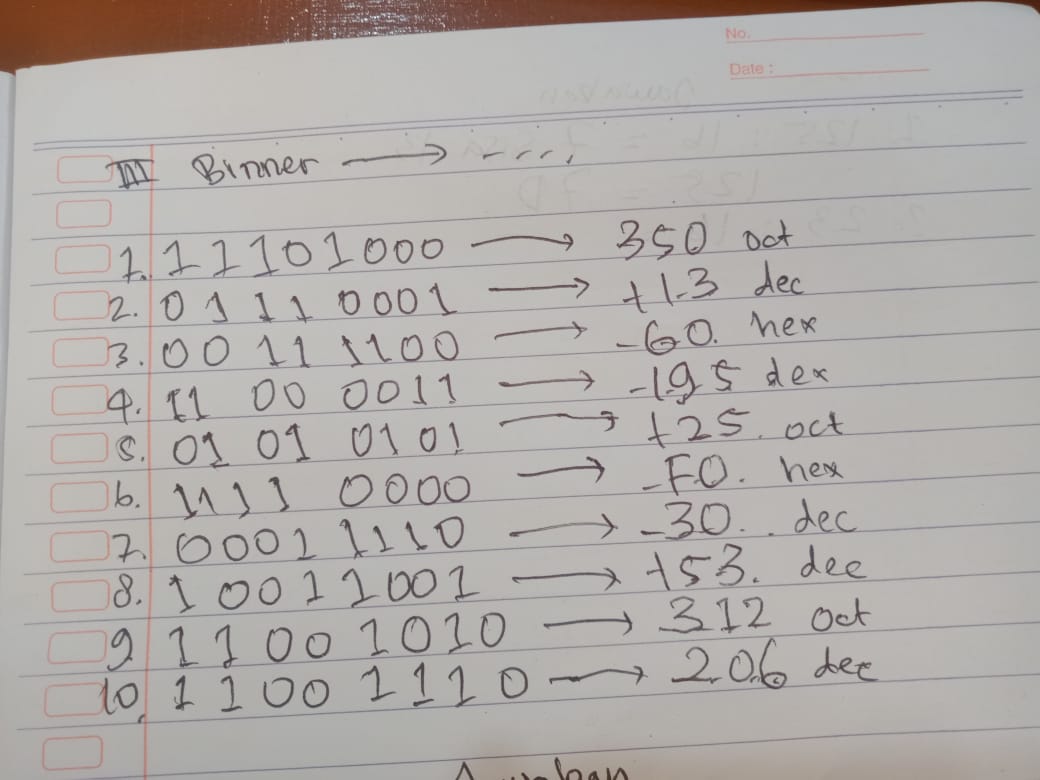 No.
Date :
III Binner → ....
1. 11101000 → 350 oct
2. 0111 0001 → +1.3 dec
3. 00 11 1100 → -60. hex
4. 11 00 0011 → -195 dex
5. 01 01 0101 → +25. oct
6. 1111 0000 → -F0. hex
7. 0001 1110 → -30. dec
8. 1 0011001 → +53. dec
9 1100 1010 → 312 oct
10. 1100 1110 → 2.06 dec